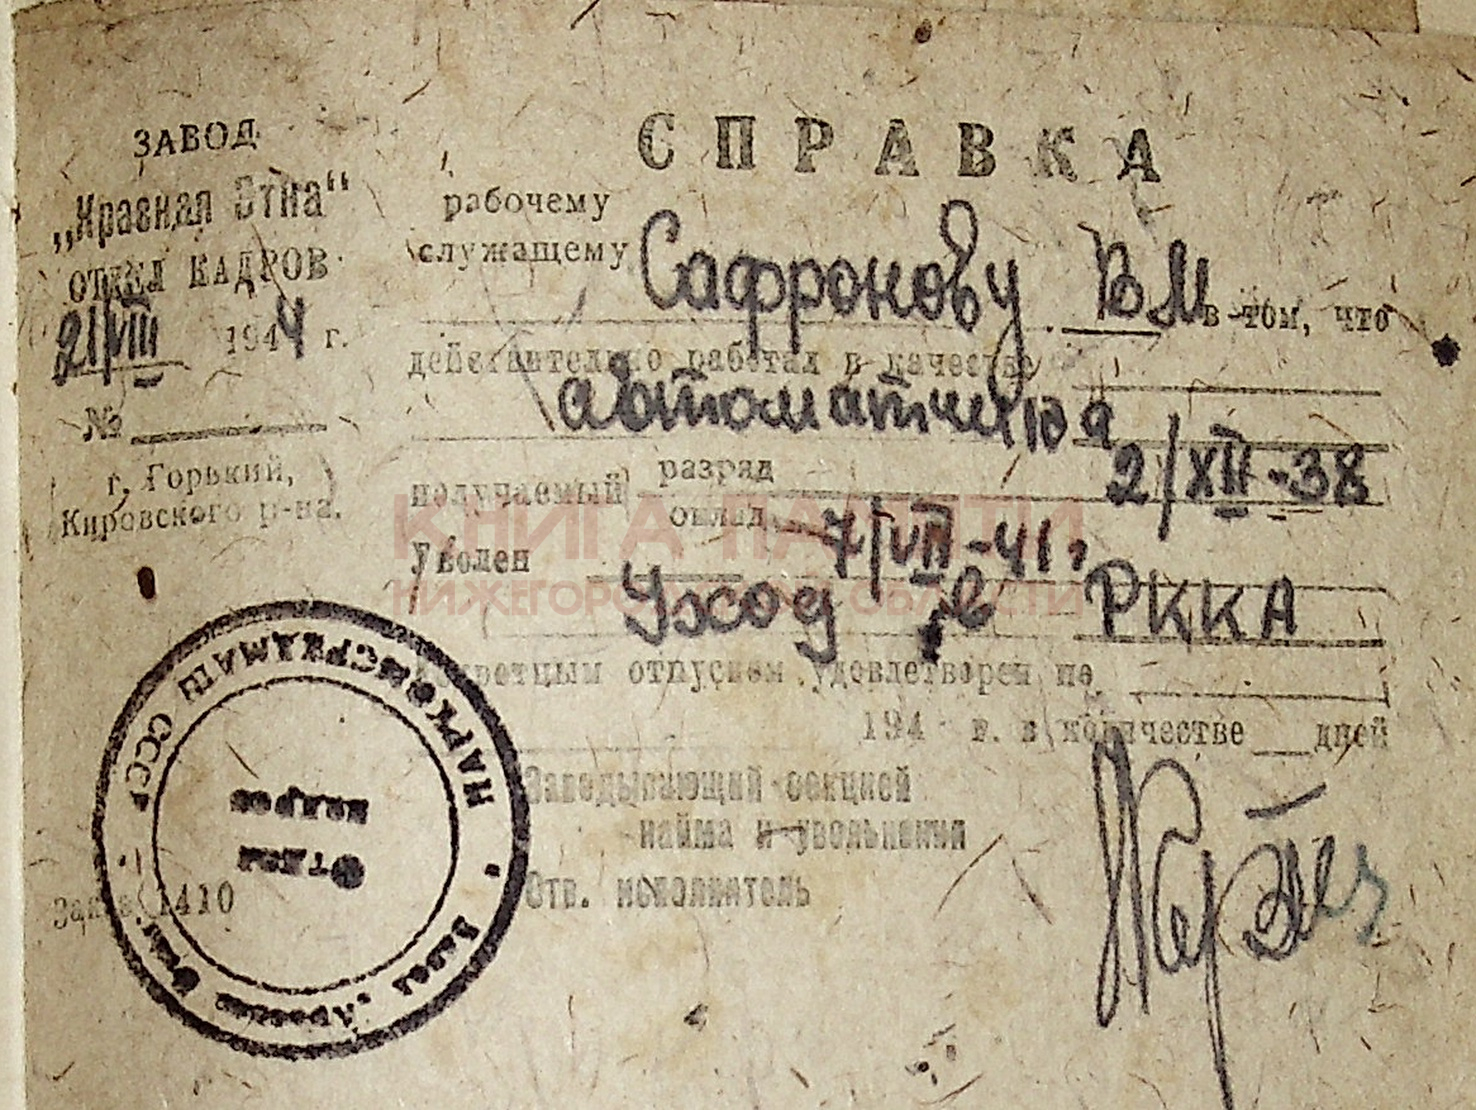 ЗАВОД
„Красная Этна“
ОТДЕЛ КАДРОВ
21/VIII 1944 г.
№
г. Горький,
Кировского р-на.
СПРАВКА
рабочему
служащему Сафронову В М в том, что
действительно работал в качестве
автоматчика
2/XII-38
получаемый разряд
оклад
Уволен 7/VII-41г
Уход в РККА
очередным отпуском удовлетворен по
194 г. в количестве дней
Заведывающий секцией
найма и увольнения
Отв. исполнитель
Зак. 1410
НАРКОМСРЕДМАШ СССР
Завод „Красная Этна“
Отдел
кадров
КНИГА ПАМЯТИ
НИЖЕГОРОДСКОЙ ОБЛАСТИ